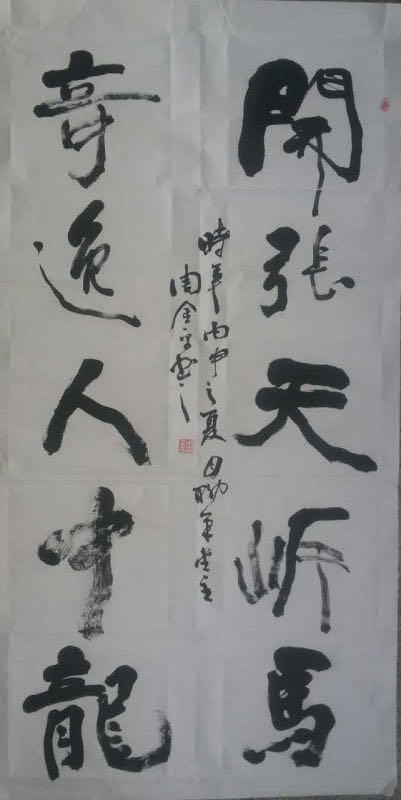 開張天岸馬
奇逸人中龍
時年丙申之夏
堂主
周金
書